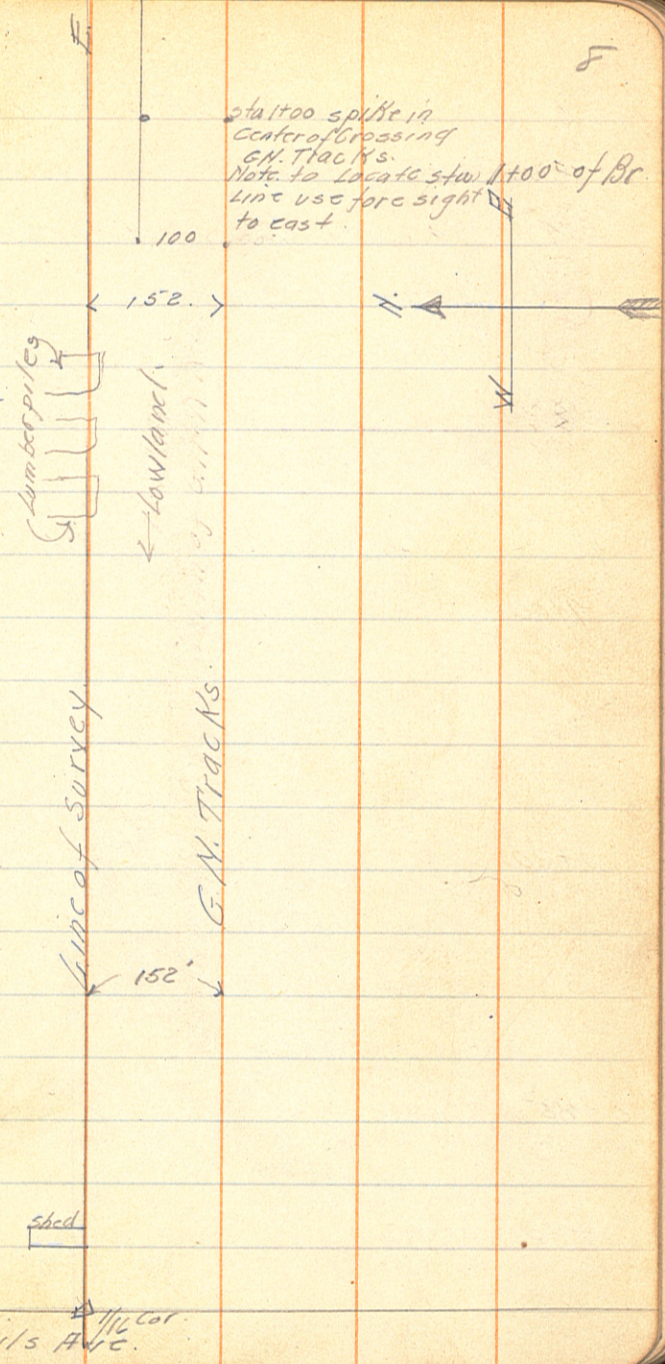 8
E
sta 1+00 spike in
Center of Crossing
G.N. Tracks.
Note. to Locate sta 1+00 of Br.
Line use fore sight
to east.
100
152.
N.
E
W
Lumber piles
Lowland.
Line of Survey.
G.N. Tracks.
152'
shed
1/16 Cor.
Ave.